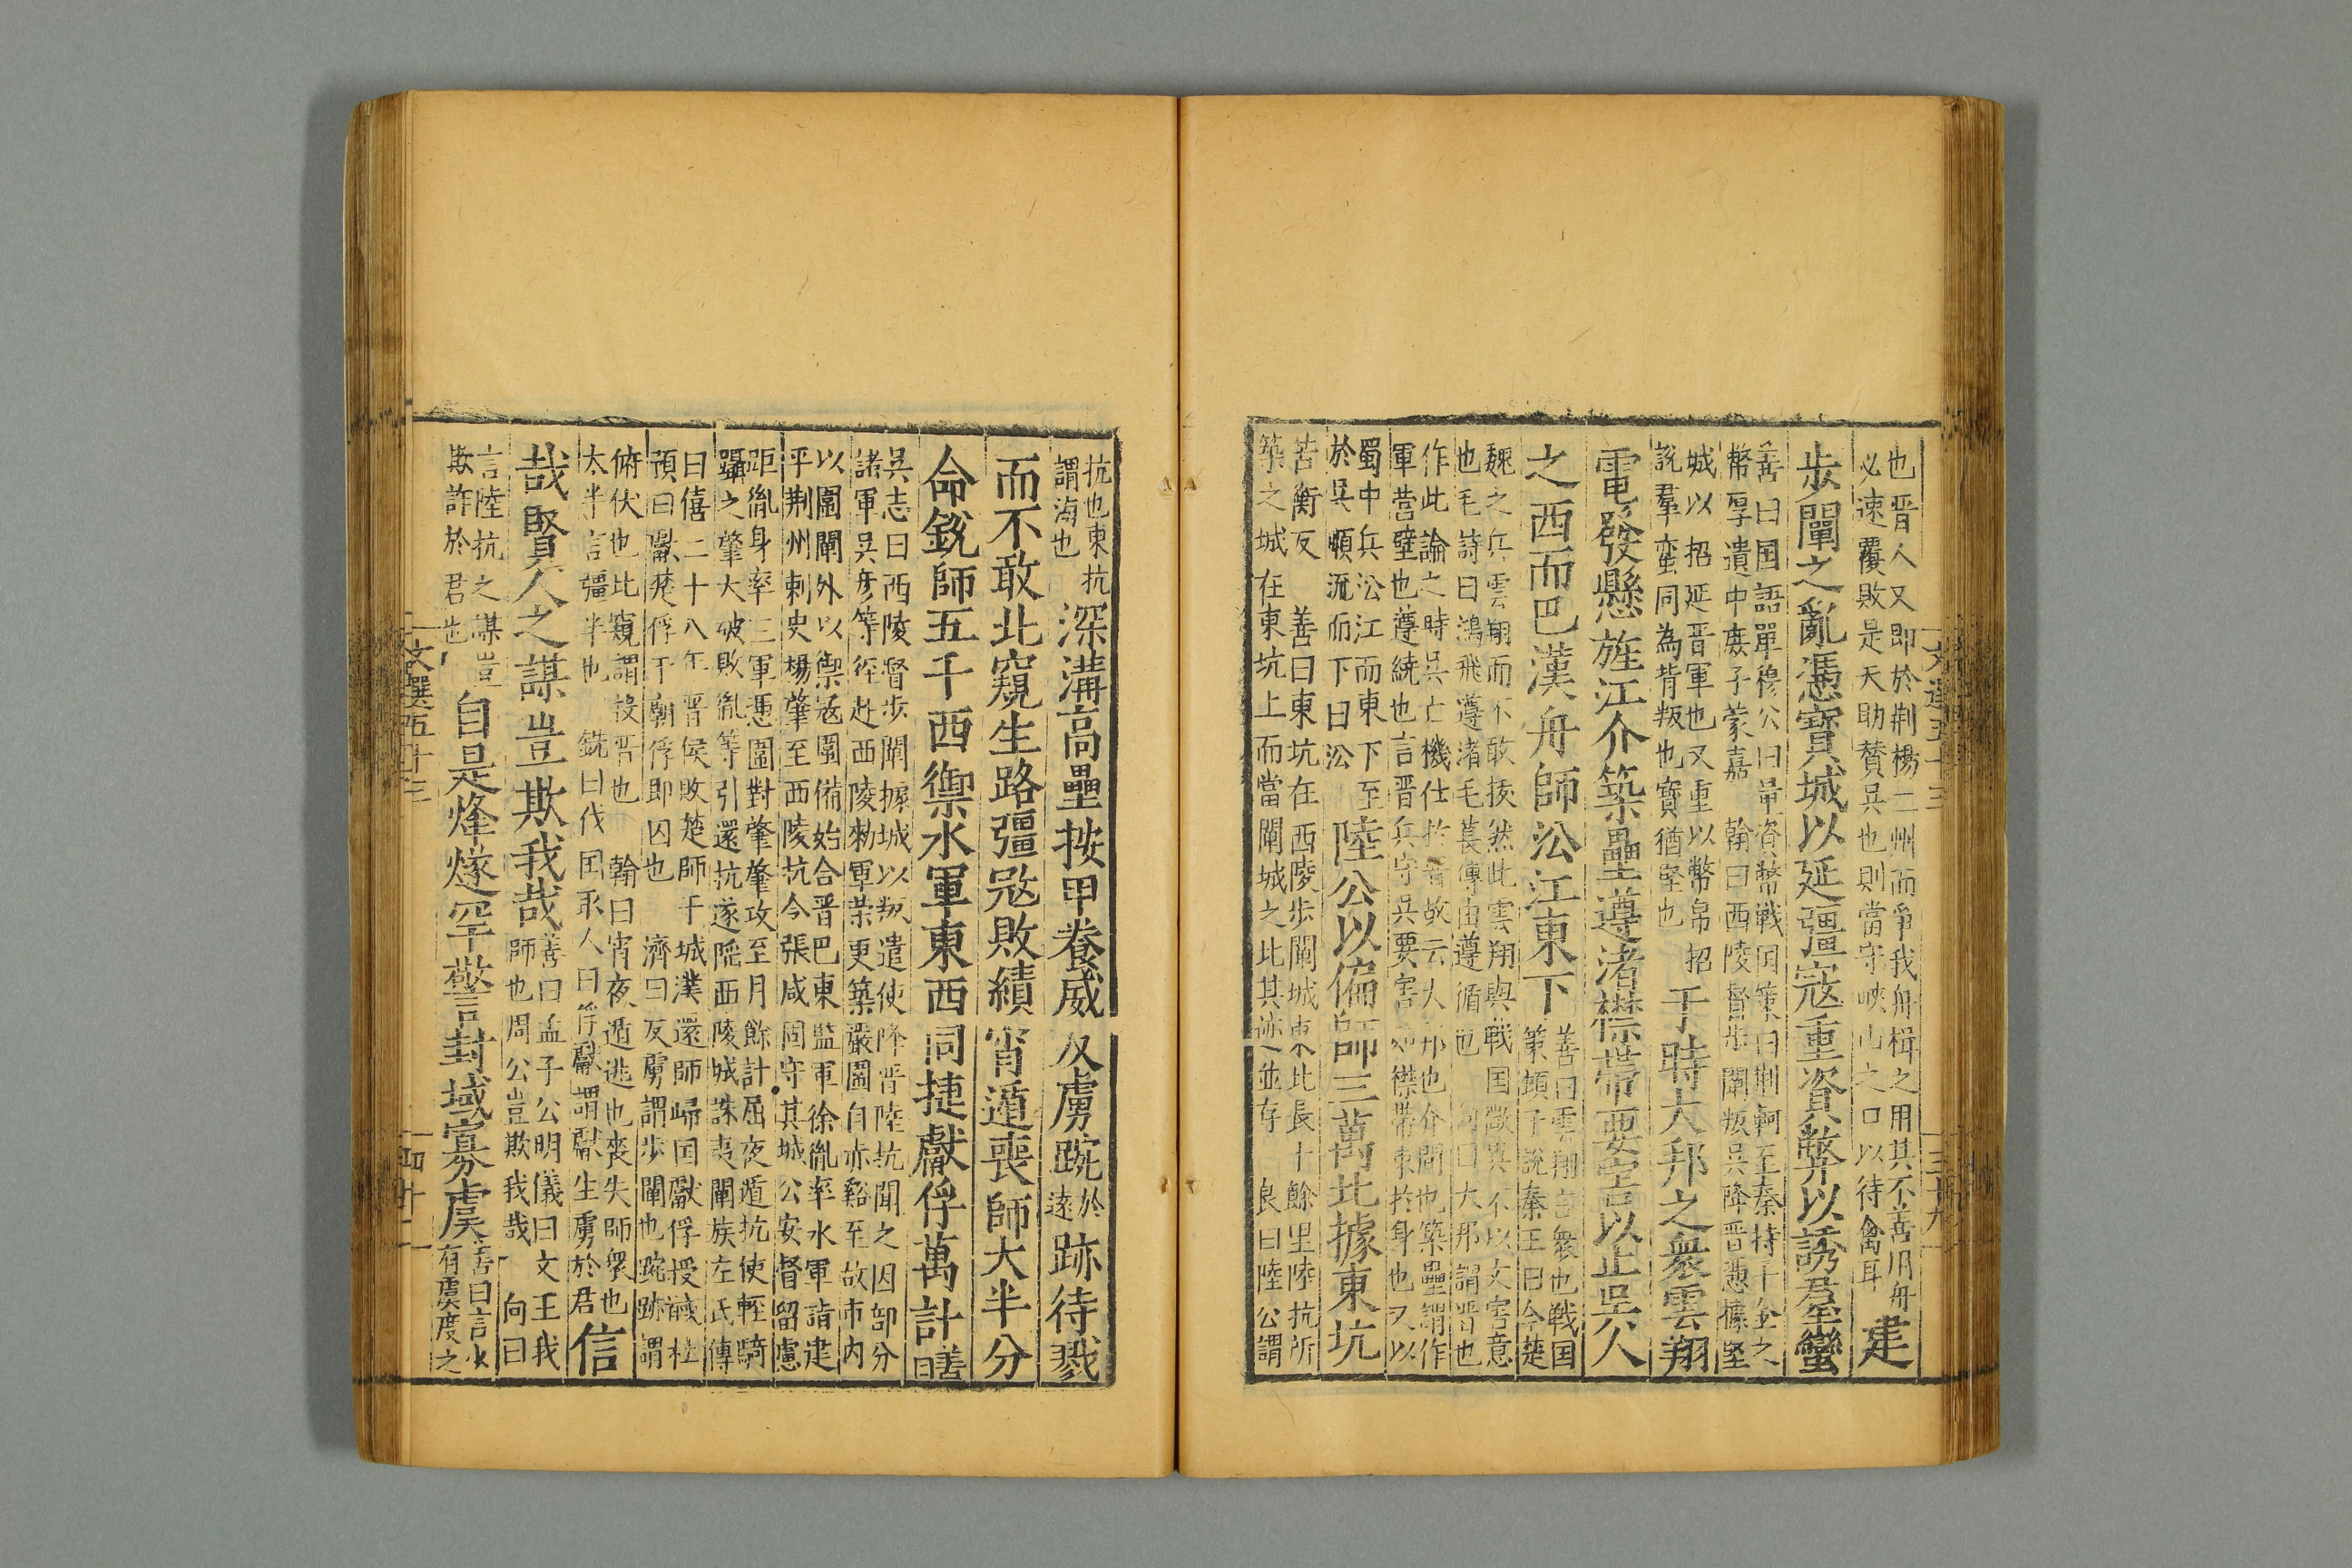 也晋人又即於荆楊二州而爭我舟楫之用其不善用舟
必速覆敗是天助賛吳也則當守峽山之口以待禽耳
建
步闡之亂憑寶城以延彊寇重資幣以誘羣蠻
善曰國語單穆公曰量資幣戰国策曰荆軻至秦持千金之
幣厚遺中庶子蒙嘉 翰曰西陵督步闡叛吳降晋憑據堅
城以招延晋軍也又重以幣帛招
說羣蛮同為背叛也寶猶堅也
于時大邦之衆雲翔
電發懸旌江介築壘遵渚襟帶要害以止吳人
之西而巴漢舟師沿江東下
善曰雲翔言衆也戰国
策頓子說秦王曰今楚
魏之兵雲翔而不敢挨然此雲翔與戰国微異不以文害意
也毛詩曰鴻飛遵渚毛萇傳曰遵循也 向曰大邦謂晋也
作此論之時吳亡機仕於晋故云大邦也介間也築壘謂作
軍營壁也遵繞也言晋兵守吳要害如襟帶束於身也又以
蜀中兵沿江而東下至
於吳順流而下曰沿
陸公以偏師三萬北據東坑
苦衡反 善曰東坑在西陵步闡城東北長十餘里陸抗所
築之城在東坑上而當闡城之北其迹並存 良曰陸公謂
抗也東抗
謂海也
深溝高壘按甲養威反虜踠
於
遠
跡待戮
而不敢北窺生路彊寇敗績宵遁喪師大半分
命銳師五千西禦水軍東西同捷獻俘萬計
善
曰
吳志曰西陵督步闡據城以叛遣使降晋陸抗聞之因部分
諸軍吳彥等徑赴西陵勑軍營更築嚴圍自赤谿至故市内
以圍闡外以禦寇圍備始合晋巴東監軍徐胤率水軍詣建
平荆州刺史楊肇至西陵抗令張咸固守其城公安督留慮
距胤身率三軍憑圍對肇肇攻至月餘計屈夜遁抗使輕騎
躡之肇大破敗胤等引還抗遂陷西陵城誅夷闡族左氏傳
曰僖二十八年晋侯敗楚師于城濮還師歸国獻俘授馘杜
預曰獻楚俘于廟俘即囚也 濟曰反虜謂步闡也踠跡謂
俯伏也北窺謂投晋也 翰曰宵夜遁逃也喪失師衆也
太半言彊半也 銑曰伐国取人曰俘獻謂獻生虜於君
信
哉賢人之謀豈欺我哉
善曰孟子公明儀曰文王我
師也周公豈欺我哉 向曰
言陸抗之謀豈
欺詐於君也
自是烽燧罕警封域寡虞
善曰言少
有虞度之
文選五十三
四十二